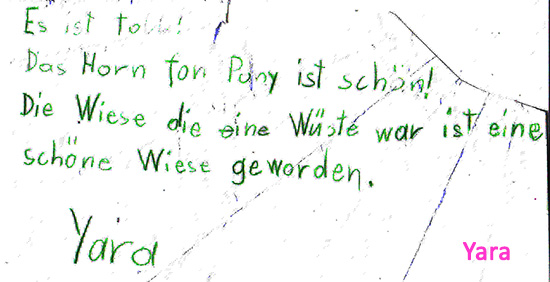 Es ist toll!
Das Horn fon Pony ist schön!
Die Wiese die eine Wüste war ist eine
schöne Wiese geworden.
Yara
Yara